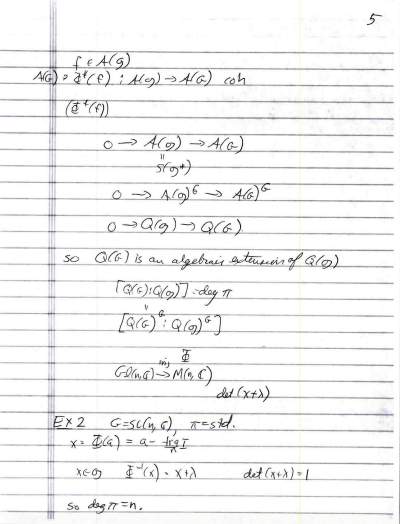 5
f ∈ A(g)
A(G) ∋ Φ*(f) : A(g) → A(G) coh
(Φ*(f))
0 → A(g) → A(G)
"
S(g*)
0 → A(g)^G → A(G)^G
0 → Q(g) → Q(G)
so Q(G) is an algebraic extension of Q(g)
[Q(G):Q(g)] = deg π
"
[Q(G)^G : Q(g)^G]
Φ
Gl(n,C) inj→ M(n, C)
det(x+λ)
Ex 2 G=SL(n,C), π=std.
x = Φ(a) = a - tr a/n I
x ∈ g Φ^-1(x) = x+λ det(x+λ)=1
so deg π = n.